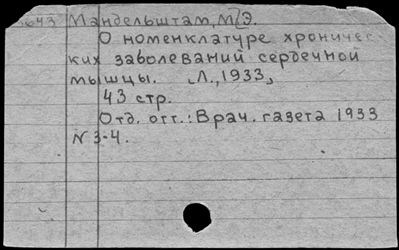 643 Мандельштам, М[Э.
О номенклатуре хроничес-
ких заболеваний сердечной
мышцы. Л., 1933,
43 стр.
Отд. отт.: Врач. газета 1933
N 3-4.